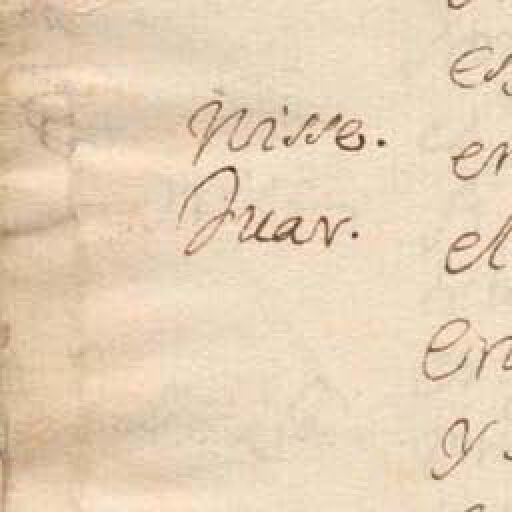 Nisse.
Juan.
es
en
el
En
y